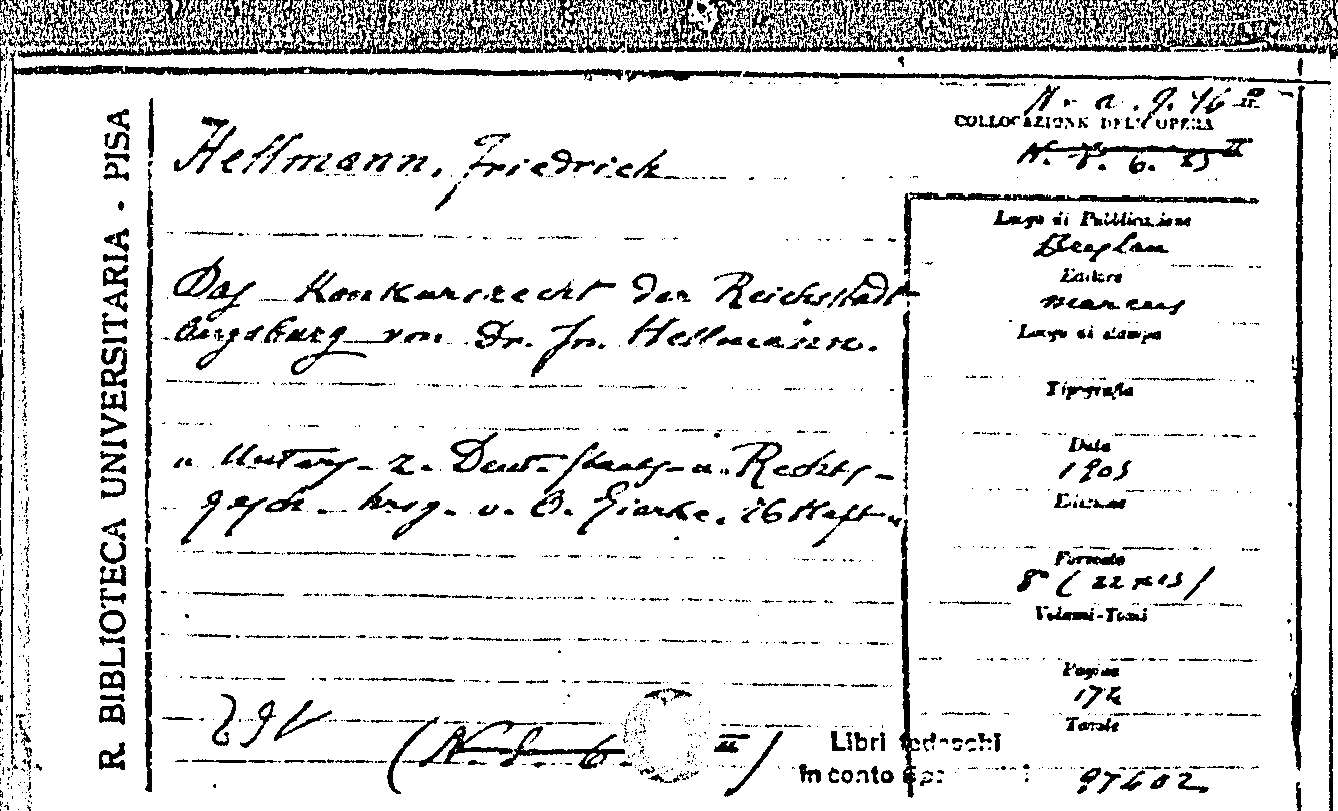 R. BIBLIOTECA UNIVERSITARIA - PISA
N. a. 9. 46 II
COLLOCAZIONE DELL'OPERA
N. 8. 6. 25 II
Hellmann, Friedrich
Luogo di Pubblicazione
Breslau
Editore
Marcus
Luogo di stampa
Tipografia
Data
1905
Edizione
Formato
8° (22x15)
Volumi-Tomi
Pagine
172
Tavole
97602
Das Konkursrecht der Reichsstadt
Augsburg von Dr. Fr. Hellmann.
" Unters. z. Deut. Staats- u. Rechts-
gesch. hrsg. v. O. Gierke. 76 Heft "
(N. 8. 6. II)
Libri tedeschi
In conto